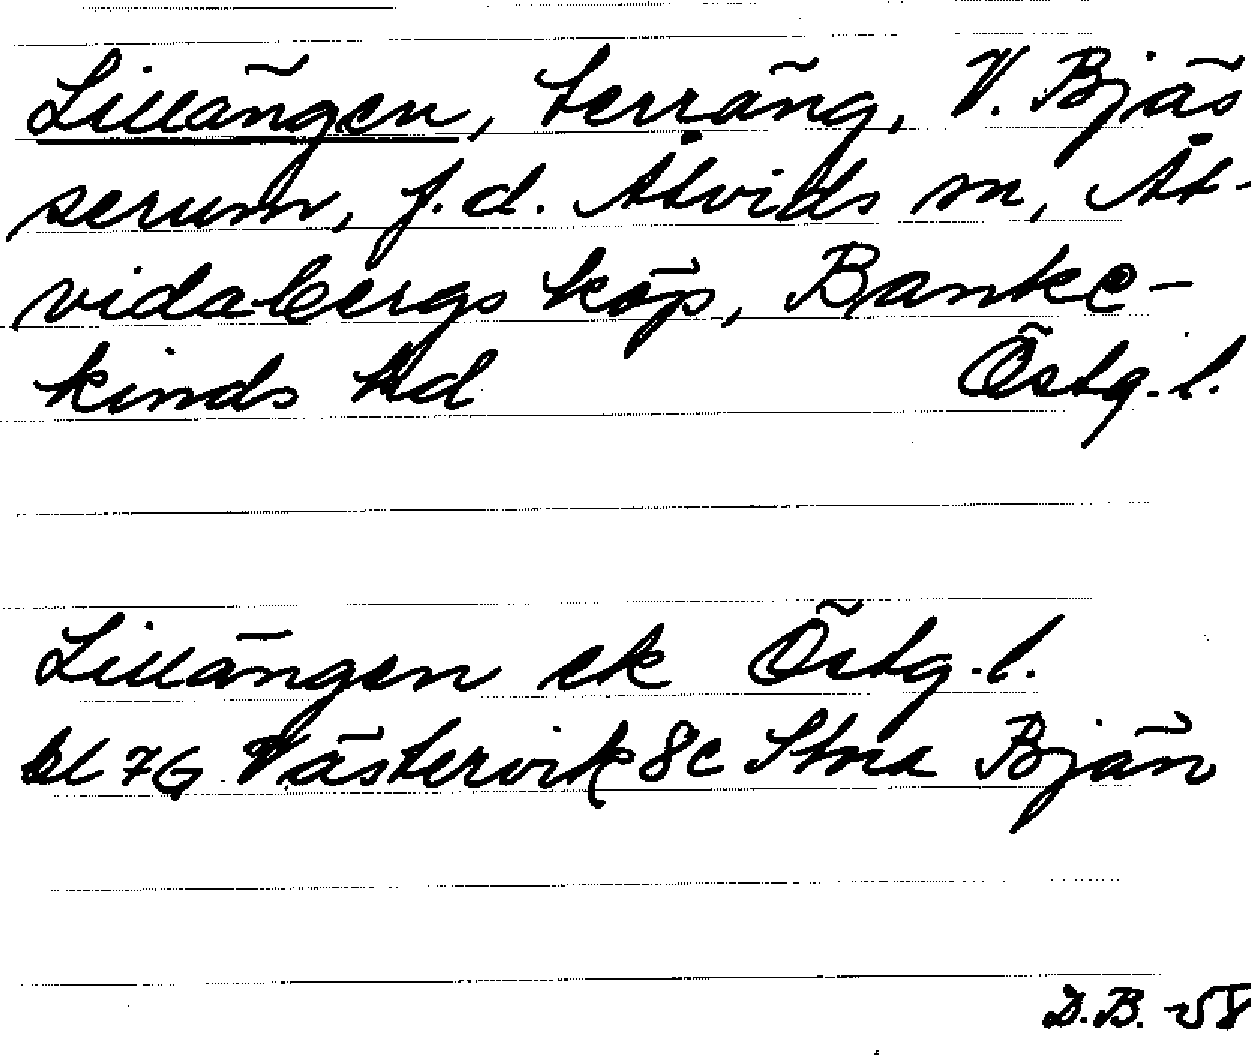 Lillängen, terräng, V. Bjäs
serum, f.d. Åtvids sn, Åt-
vidabergs köp, Banke-
kinds hd Östg.l.
Lillängen ek Östg.l.
bl 7G Västervik 8c Stna Bjän
D.B. -58